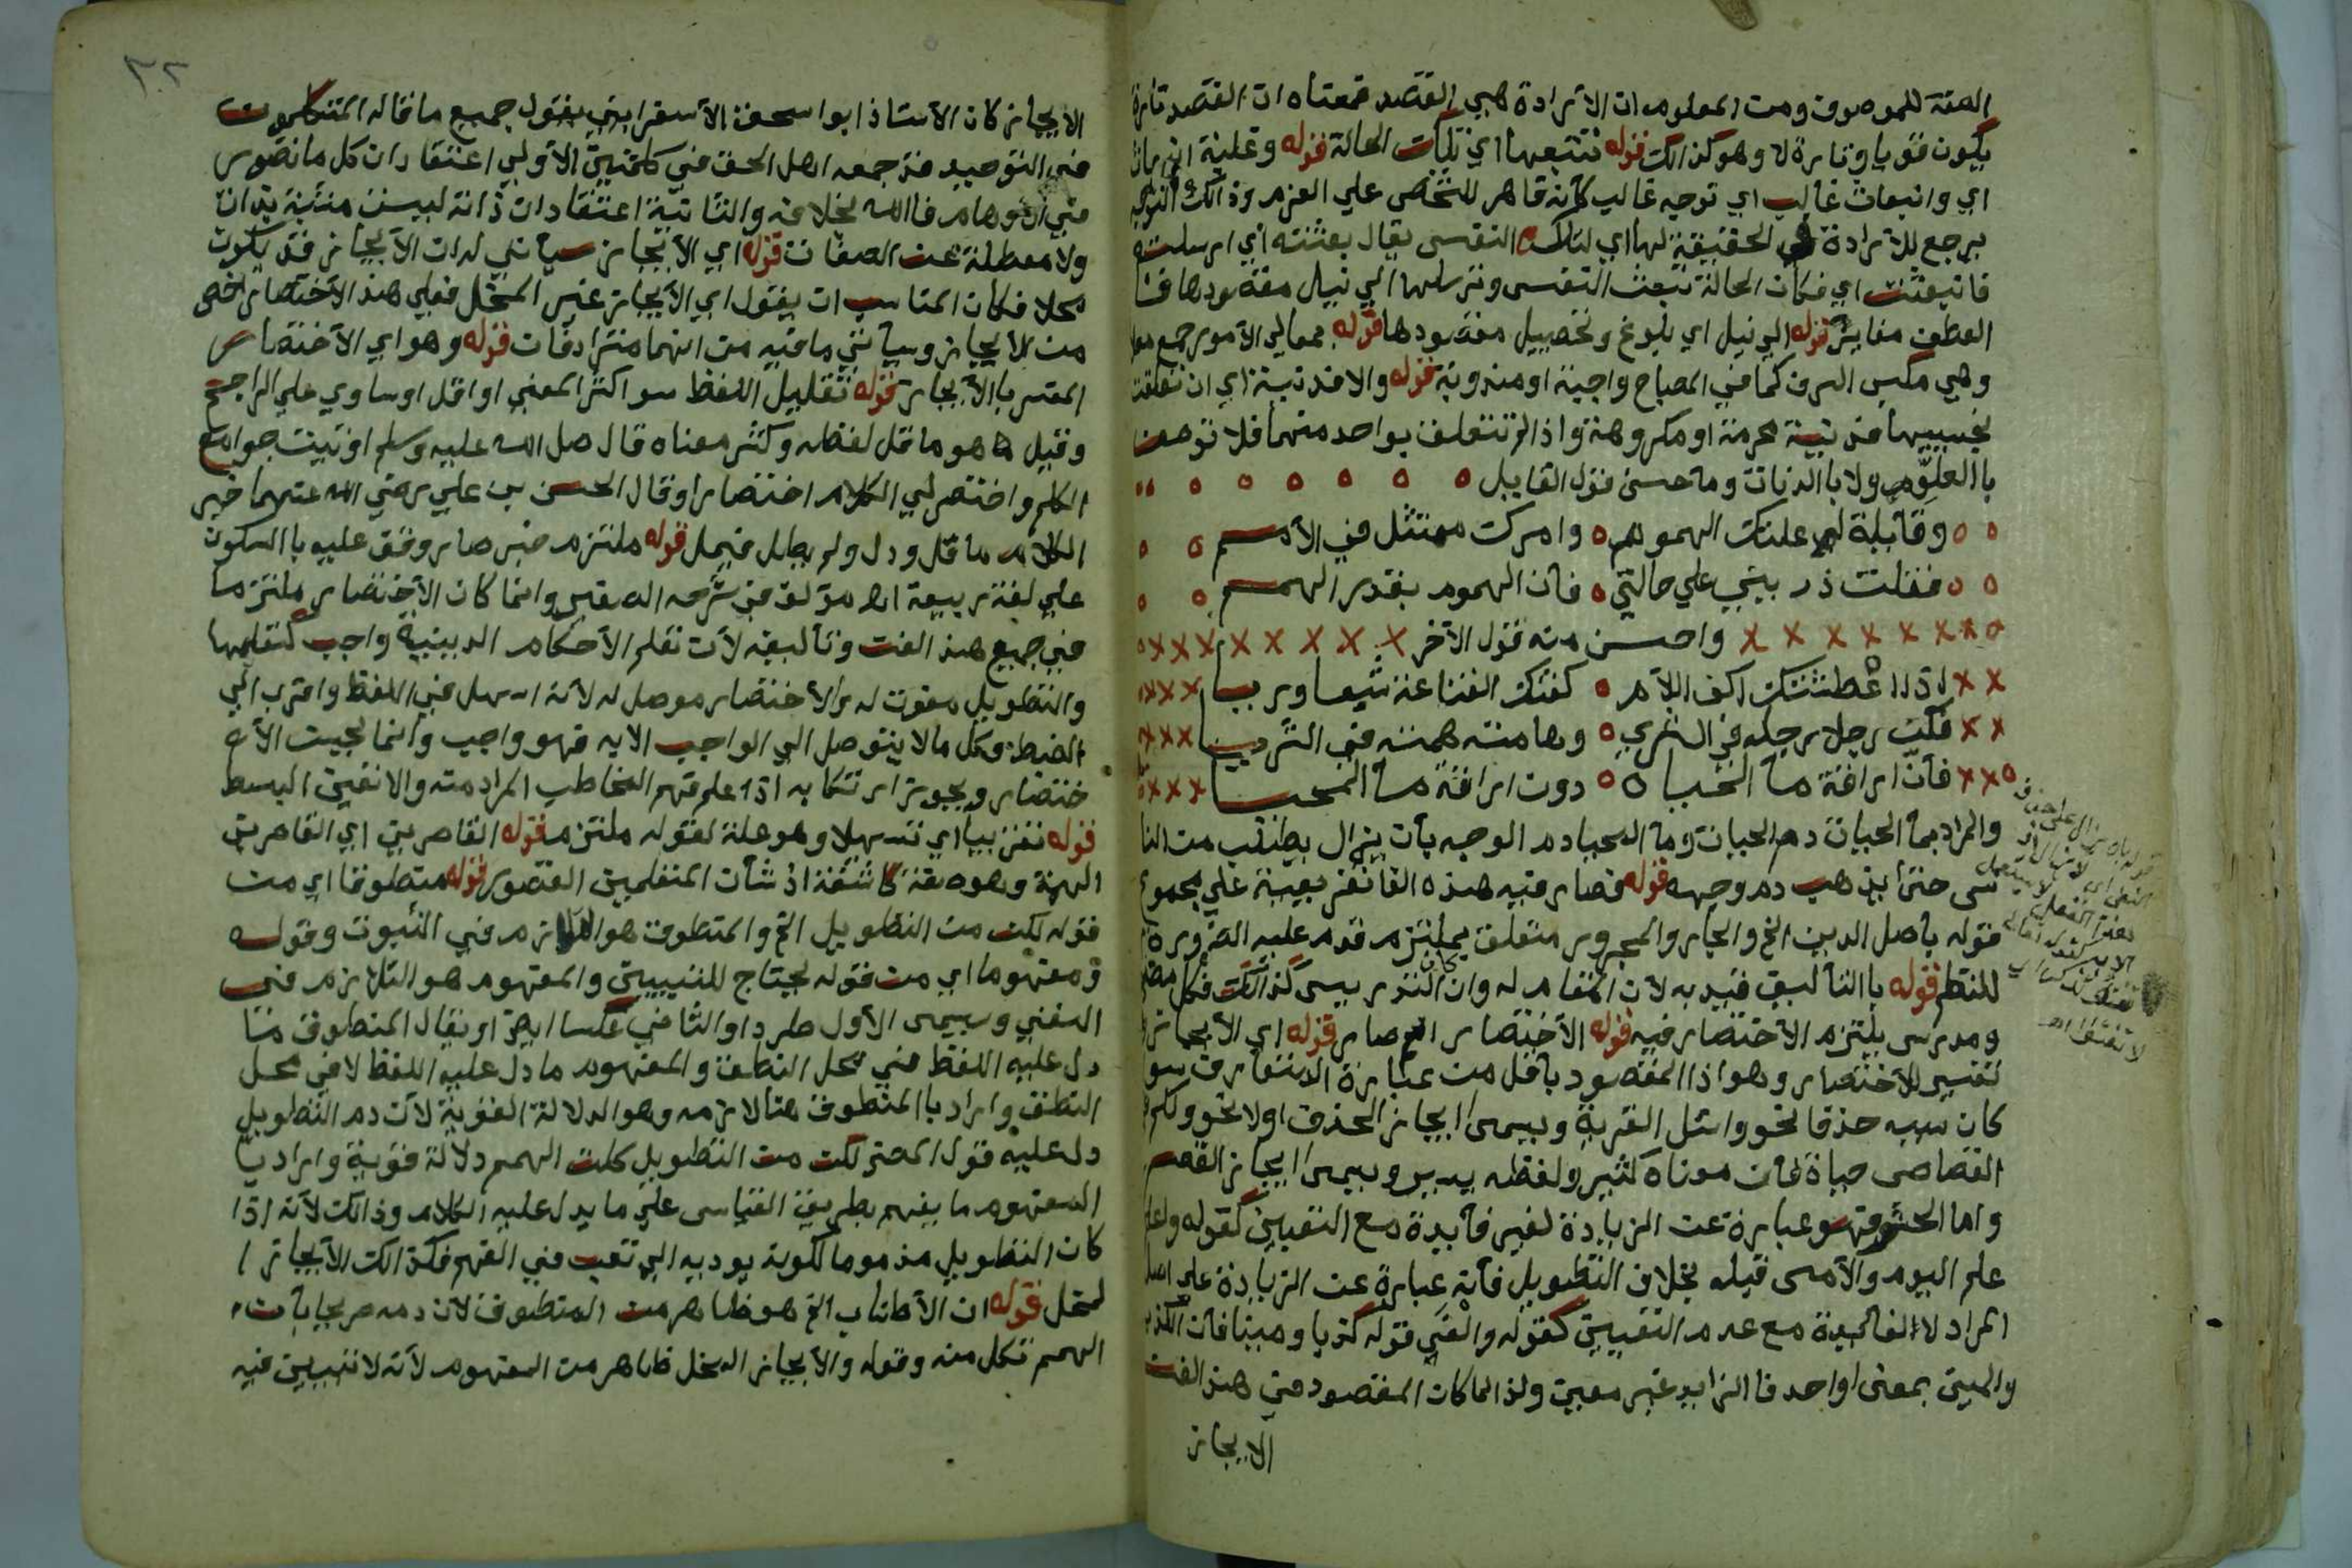 الصفة للموصوف ومن المعلوم ان الارادة هي القصد فمعناه ان القصد تارة
يكون قويا وتارة لا وهو كذلك قوله تتبعها اي تلك الحالة قوله وغلبة
اي وانبعاث غالب اي توجيه غالب كانه قاهر للشخص علي العزم وذالك
يرجع للارادة في الحقيقة لها اي لتلك النفس يقال بعثته اي ارسلته
فانبعثت اي فكان الحالة تبعث النفس وترسلها الي نيل مقصودها
العطف مغاير قوله الي نيل اي بلوغ وتحصيل مقصودها قوله بمعالي الأمور جمع
وهي مكسب الشرف كما في المصباح واجبة او مندوبة قوله والا فدنية اي ان تعلقت
بخسيسها فدنية محرمة او مكروهة واذا لم تتعلق بواحد منهما فلا توصف
باالعلوّ ولا باالدنات وما حسن قول القايل
وقايلة لم علتك الهموم وامرك ممتثل في الأمم
فقلت ذريني علي حالتي فان الهموم بقدر الهمم
واحسن منه قول الآخر
اذا اعطشتك اكف اللآم كفتك القناعة شبعا وريا
فكن رجلا رجله في الثري وهامته همته في الثريا
فان اراقة ماء الحياة دون اراقة ماء المحيا
والمراد بماء الحيات دم الحيات وماء المحيا دم الوجه بأن يزال يطلب من النا
س حتي يذهب دم وجهه قوله فصار فيه هذه القا تفريعية علي مجموع
قوله باصل الدين الخ والجار والمجرور متعلق بملتزم قدم عليه الضرورة
للنظم قوله باالتأليف قيد به لأن المقام له وان كان التدريس كذلك فكل مصنف
ومدرس يلتزم الاختصار فيه قوله الأختصار الخ صار قوله اي الأيجاز
تفسير للأختصار وهو اذا المقصود بأقل من عبارة المتعارف سوا
كان سببه حذفا نحو واسئل القرية ويسمى ايجاز الحذف اولا نحو ولكم في
القصاص حياة فان معناه كثير ولفظه يسير ويسمى ايجاز القصر
واما الحشو فهو عبارة عن الزيادة لغير فأيدة مع التعيين كقوله واعلم
علم اليوم والأمس قبله بخلاف التطويل فأنه عبارة عن الزيادة علي اصل
المراد لا لفائيدة مع عدم التعيين كقوله والفي قوله كذبا ومينا فان الكذب
والمين بمعنى واحد فا الزايد غير معين ولذا لما كان المقصود من هذ الفن
الايجاز
٣٢
الايجاز كان الأستاذ ابوا سحق الأسفرايني يقول جميع ما قاله المتكلمون
في التوحيد قد جمعه اهل الحق في كلمتين الاولي اعتقاد ان كل ما تصور
في الأوهام فا الله بخلافه والثانية اعتقاد ان ذاته ليست مشبهة بذات
ولا معطلة عن الصفات قوله اي الأيجاز سيأتي له ان الأيجاز قد يكون
مخلا فكان المناسب ان يقول اي الأيجاز غير المخل فعلي هذ الأختصار اخص
من الأيجاز وسيأتي ما فيه من انهما مترادفان قوله وهو اي الأختصار
المفسر باالأيجاز قوله تقليل اللفظ سوا كثر المعني او اقل او ساوي علي الراجح
وقيل ما هو ما قل لفظه وكثر معناه قال صل الله عليه وسلم اوتيت جوامع
الكلم واختصر لي الكلام اختصارا وقال الحسن بن علي رضي الله عنهما خير
الكلام ما قل ودل ولم يطل فيمل قوله ملتزم خبر صار وقف عليه باالسكون
علي لغة ربيعة اه مؤلف في شرحه الصغير وانما كان الأختصار ملتزما
في جميع هذ الفن وتأليفه لأن تعلم الأحكام الدينية واجب كتعليمها
والتطويل مفوت له والأختصار موصل له لأنه اسهل في اللفظ واقرب الي
الضبط وكل ما لا يتوصل الي الواجب الا به فهو واجب وانما يجب الأ
ختصار ويجوز ارتكابه اذا علم فهم المخاطب المراد منه والا تعين البسط
قوله تقريبا اي تسهيلا وهو علة لقوله ملتزم قوله القاصرين اي القاصرين
الهمة وهو صفة كاشفة اذ شأن المتعلمين القصور قوله منطوقا اي من
قوله لكن من التطويل الخ والمنطوق هو اللازم في الثبوت وقوله
ومفهوما اي من قوله يحتاج للتبيين والمفهوم هو التلازم في
النفي ويسمى الأول طردا والثاني عكسا ايضا او يقال المنطوق ما
دل عليه اللفظ في محل النطق والمفهوم ما دل عليه اللفظ لا في محل
النطق واراد باالمنطوق هنا لازمه وهو الدلالة القوية لأن دم التطويل
دل عليه قول المص لكن من التطويل كلت الهمم دلالة قوية واراد با
المفهوم ما يفهم بطريق القياس علي ما يدل عليه الكلام وذالك لأنه اذا
كان التطويل مذموما لكونه يودي الي تعب في الفهم فكذالك الأيجاز ا
لمخل قوله ان الأطناب الخ هو ظاهر من المنطوق لأن دمه صريحا بأن
الهمم تكل منه وقوله والأيجاز المخل ظاهر من المفهوم لأنه لا تبيين فيه